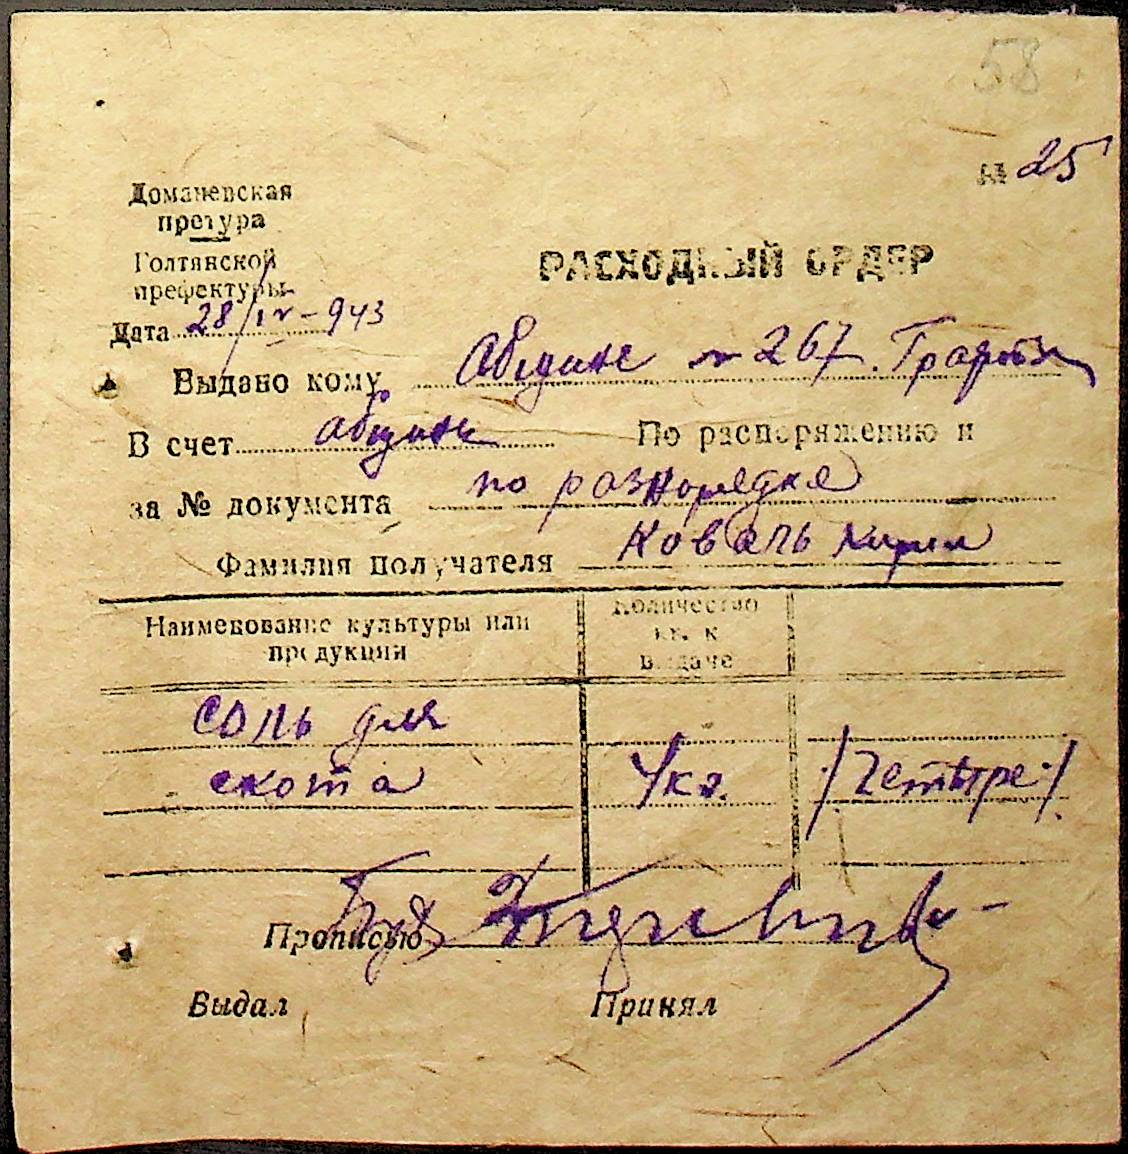 58
№ 25
Доманевская
претура
Голтянской
префектуры
РАСХОДНЫЙ ОРДЕР
Дата 28/IV-943
Выдано кому Общине № 267
В счет общине По распоряжению и
за № документа по разнорядке
Фамилия получателя Коваль Кирил
Наименование культуры или
продукции
Количество
кг. к
выдаче
соль для
скота 4 кг. /Четыре/
Прописью
Выдал Принял